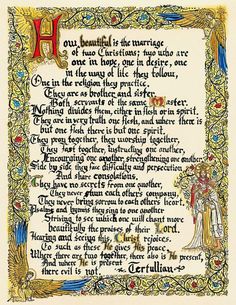 How beautiful is the marriage
of two Christians; two who are
one in hope, one in desire, one
in the way of life they follow,
One in the religion they practice.
They are as brother and sister
Both servants of the same Master.
Nothing divides them, either in flesh or in spirit.
They are in very truth one flesh, and where there is
but one flesh there is but one spirit.
They pray together, they worship together,
They fast together, instructing one another,
Encouraging one another, strengthening one another.
Side by side they face difficulty and persecution
And share consolations.
They have no secrets from one another,
They never shun each others company,
They never bring sorrow to each others heart.
Psalms and hymns they sing to one another
Striving to see which one will chant more
beautifully the praises of their Lord.
Hearing and seeing this, Christ rejoices
To such as these He gives His peace.
Where there are two together, there also is He present,
And where He is present
there evil is not.
Tertullian